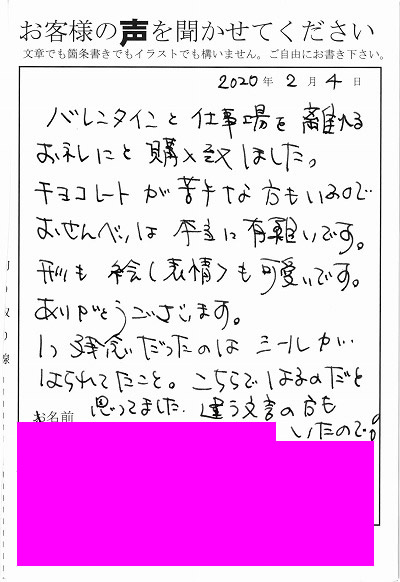 お客様の声を聞かせてください
文章でも箇条書きでもイラストでも構いません。ご自由にお書き下さい。
2020年 2月 4日
バレンタインと仕事場を離れる
お礼にと購入致しました。
チョコレートが苦手な方もいるので
おせんべいは本当に有難いです。
形も絵(表情)も可愛いです。
ありがとうございます。
1つ残念だったのはシールが…
はられてたこと。こちらではるのだと
思ってました。違う文言の方も
いたので。
お名前
切り取り線